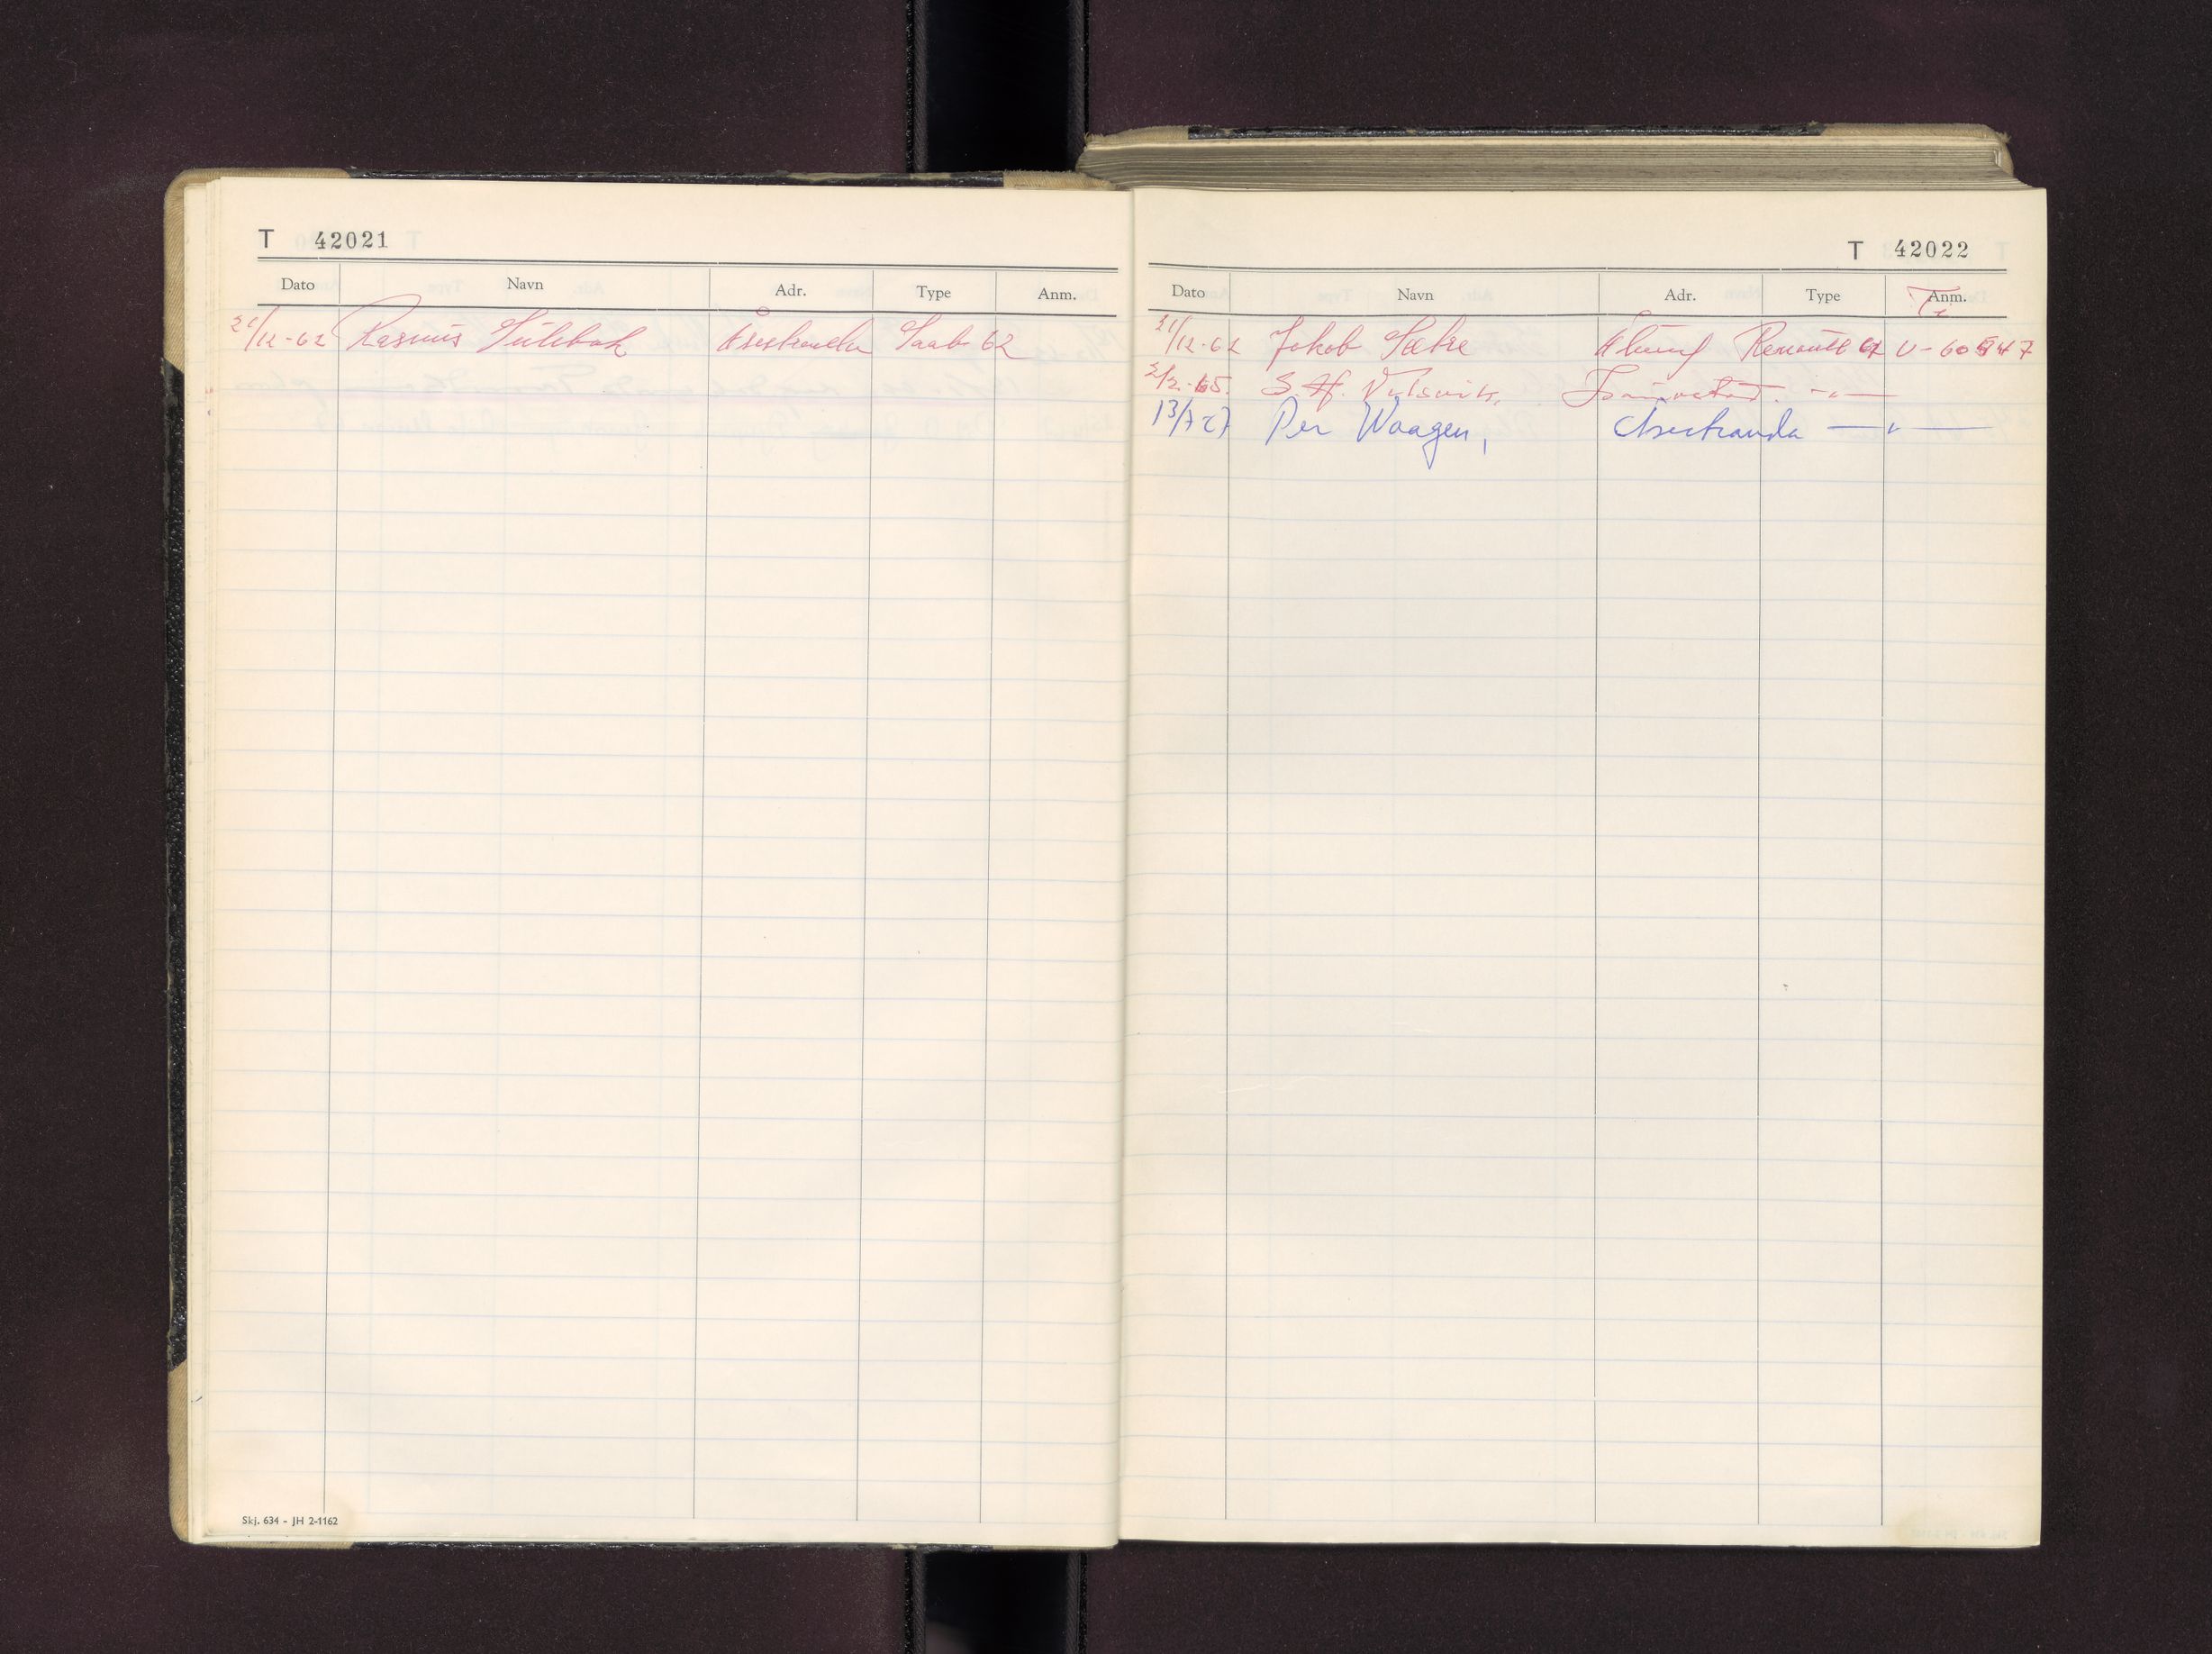 T 42021
Dato Navn Adr. Type Anm.
21/12-62 Rasmus Sulebak Åsestranda Saab 62
Skj. 634 - JH 2-1162
T 42022
Dato Navn Adr. Type Anm.
Ti
21/12-62 Jakob Sætre Ålesund Renault 62 U-60547
2/2-65. S. Vatsvik,
13/7 67 Per Waagen, Åsestranda — " —